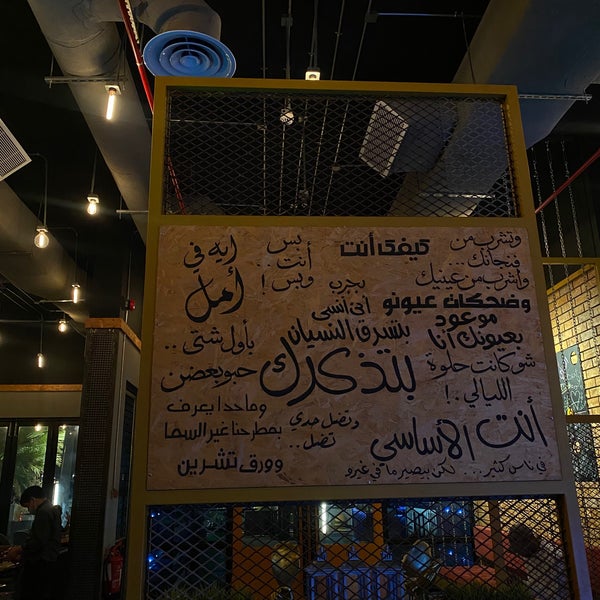 وتشرب من
فنجانك...
وأشرب من عينيك
كيفك أنت
بس
أنت..
وبس!
ايه في
أمل
وضحكات عيونو
موعود
بعيونك أنا
بجرب
اني أنسى
بتسرق النسيان
بأول شتي ..
شو كانت حلوة
الليالي ..!
بتذكرك
حبو بعضن
وما حدا يعرف
بمطرحنا غير السما
وورق تشرين
وتضل حدي
تضل ..
أنت الأساسي
في ناس كتير .. لكن بيصير ما في غيرو